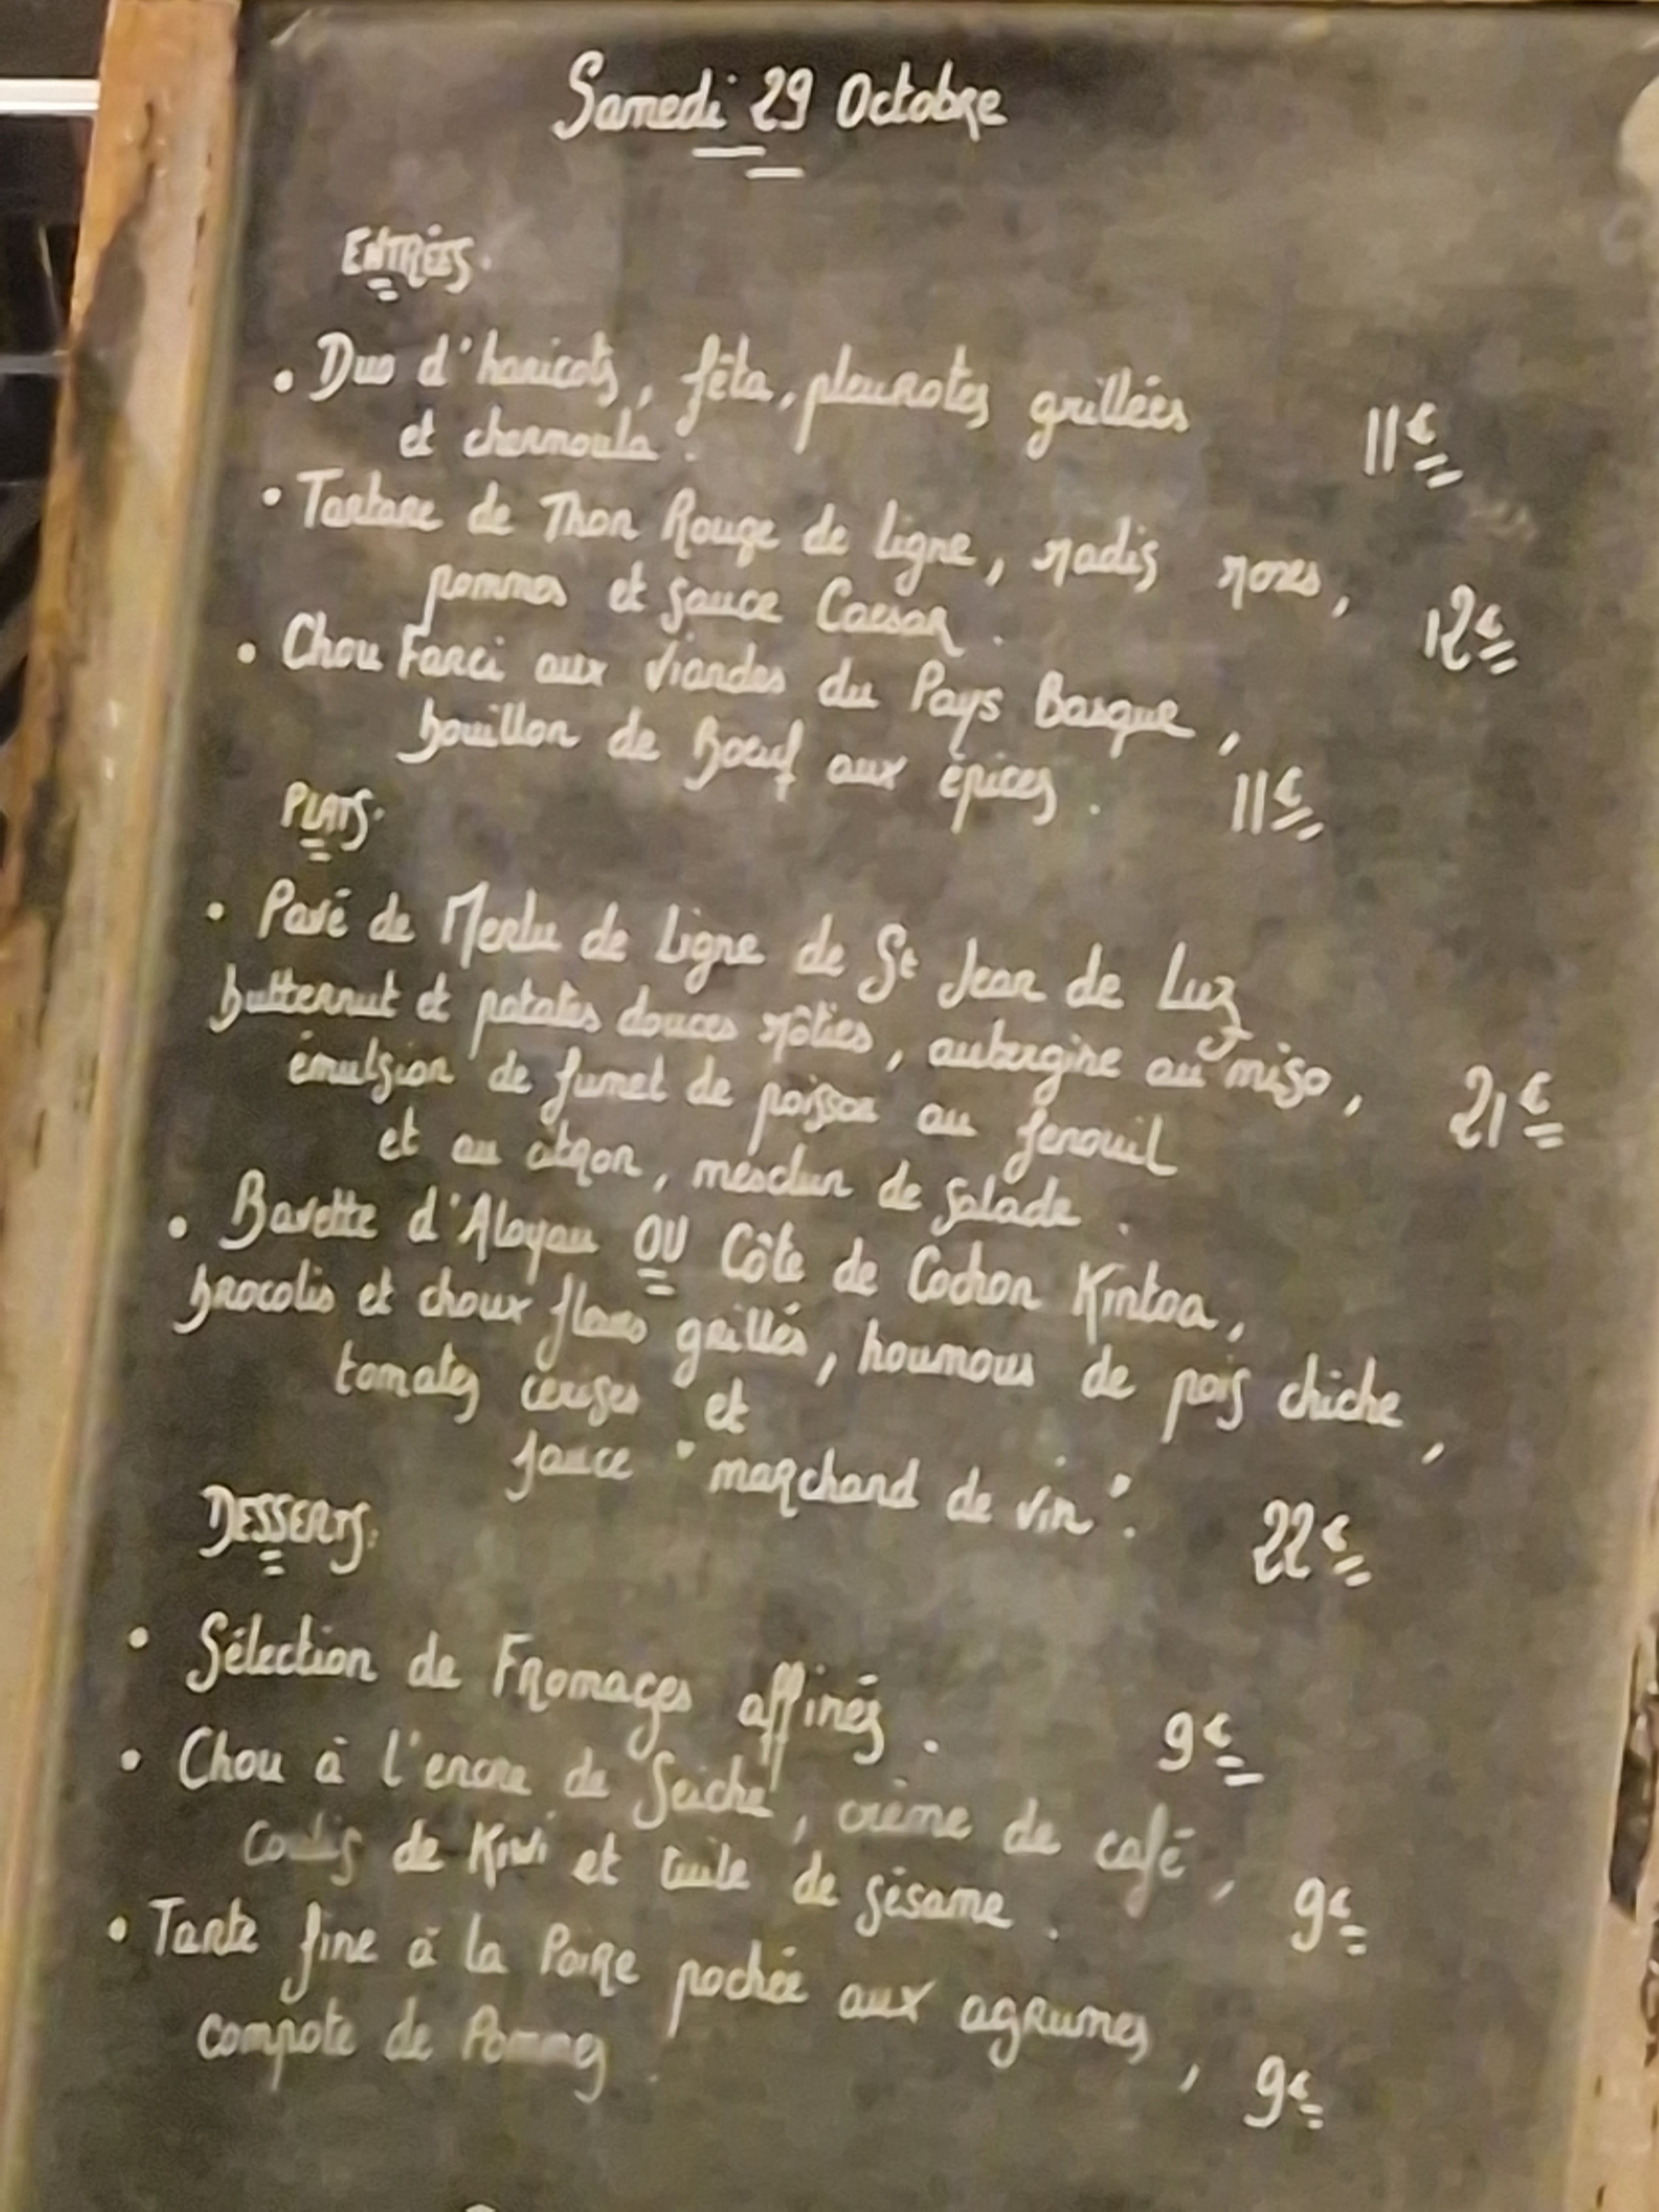 Samedi 29 Octobre
ENTRÉES.
• Duo d'haricots, fêta, pleurotes grillées
et chermoula. 11€
• Tartare de Thon Rouge de Ligne, radis roses,
pommes et sauce Caesar. 12€
• Chou Farci aux viandes du Pays Basque,
bouillon de Boeuf aux épices. 11€
PLATS.
• Pavé de Merlu de Ligne de St Jean de Luz
butternut et patates douces rôties, aubergine au miso, 21€
émulsion de fumet de poisson au fenouil
et au citron, mesclun de salade.
• Bavette d'Aloyau OU Côte de Cochon Kintoa,
brocolis et choux fleurs grillés, houmous de pois chiche,
tomates cerises et
sauce "marchand de vin". 22€
DESSERTS.
• Sélection de Fromages affinés. 9€
• Chou à l'encre de Seiche, crème de café,
coulis de Kiwi et tuile de sésame. 9€
• Tarte fine à la Poire pochée aux agrumes,
compote de Pommes. 9€